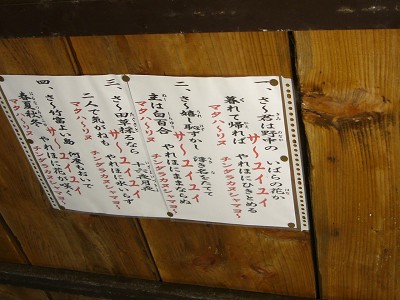 一、さ〜君は野中の いばらの花か
サーユイユイ
暮れて帰れば やれほにひきとめる
マタハーリヌ チンダラカヌシャマヨー
二、さ〜嬉し恥ずかし 浮き名をたて
サーユイユイ
主は白百合 やれほにままならぬ
マタハーリヌ チンダラカヌシャマヨー
三、さ〜田草採るなら 十六夜月夜
サーユイユイ
二人で気がねも やれほに水いらず
マタハーリヌ チンダラカヌシャマヨー
四、さ〜竹富よい島 何度もおいで
サーユイユイ
春夏秋冬 やれほに花が咲く
マタハーリヌ チンダラカヌシャマヨー